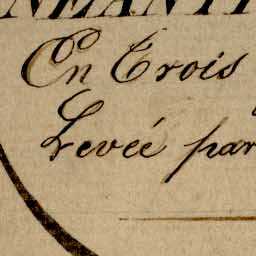 NEANTI
En Trois
Levée par